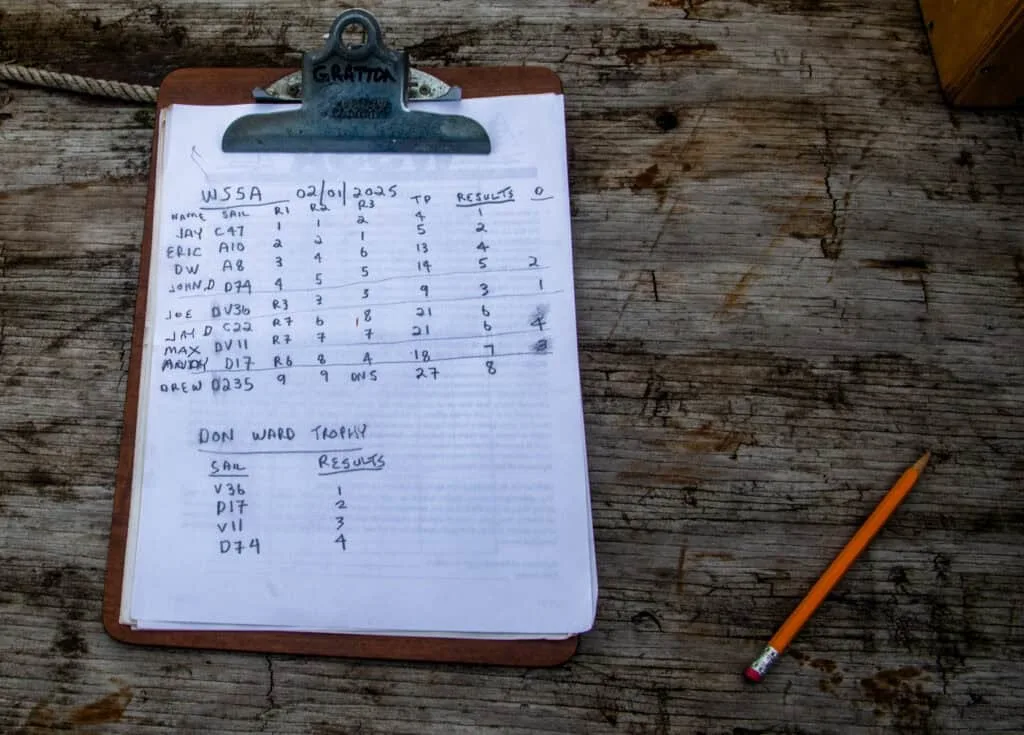 GRATTON
WSSA 02/01/2025
NAME SAIL R1 R2 R3 TP RESULTS D
JAY C47 1 1 2 4 1
ERIC A10 2 2 1 5 2
DW A8 3 4 6 13 4
JOHN.D D74 4 5 5 14 5 2
JOE DV36 R3 3 3 9 3 1
JAY D C22 R7 6 8 21 6
MAX DV11 R7 7 7 21 6 4
ANDY D17 R6 8 4 18 7 3
DREW D235 9 9 DNS 27 8
DON WARD TROPHY
SAIL RESULTS
V36 1
D17 2
V11 3
D74 4